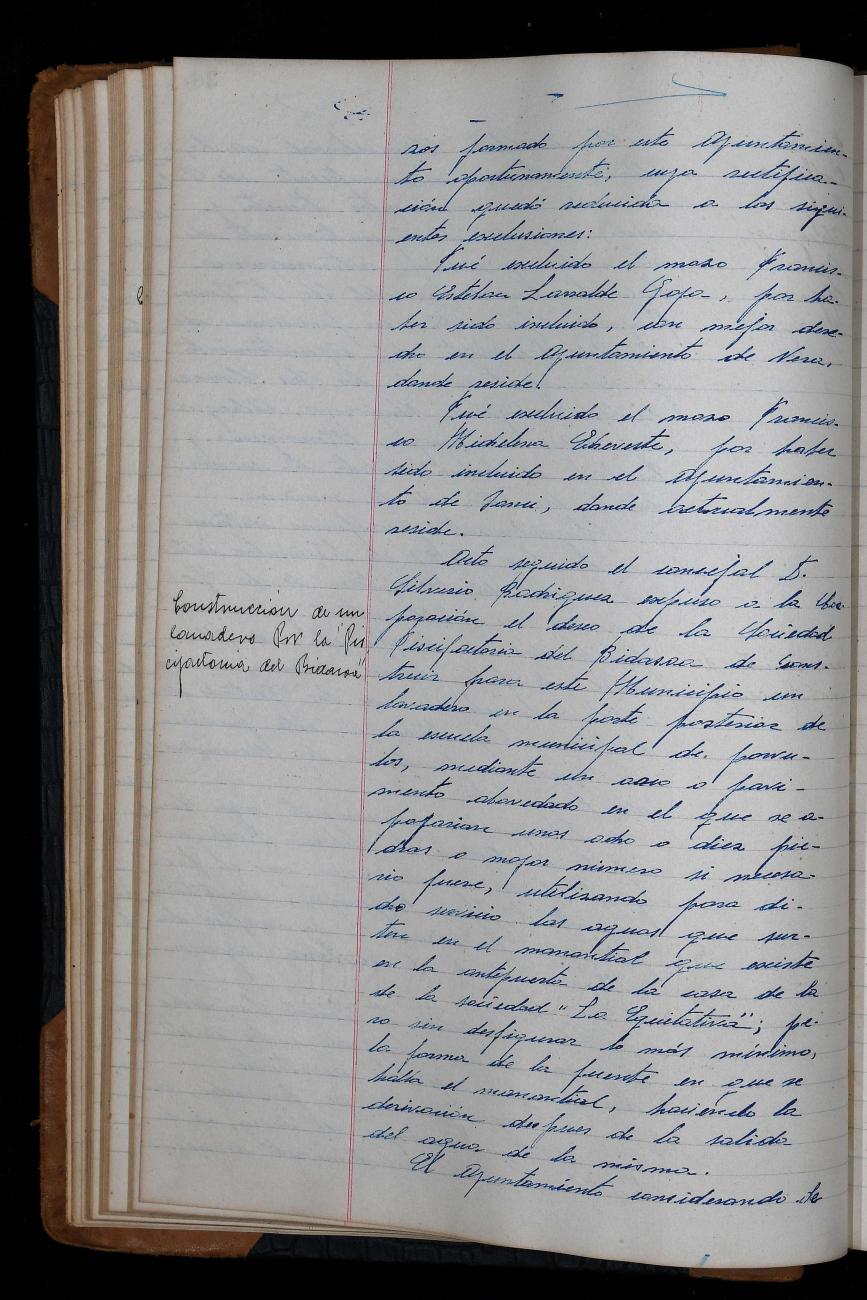 zos formado por este Ayuntamien-
to oportunamente, cuya rectifica-
ción quedó reducida a las sigui-
entes exclusiones:
Fué excluido el mozo Francis-
co Esteban Larralde Goya, por ha-
ber sido incluido, con mejor dere-
cho en el Ayuntamiento de Vera,
donde reside.
Fué excluido el mozo Francis-
co Michelena Echeveste, por haber
sido incluido en el Ayuntamien-
to de Irun, donde actualmente
reside.
Acto seguido el concejal D.
Silverio Rodriguez expuso a la Cor-
poración el deseo de la Sociedad
Piscifactoria del Bidasoa de cons-
truir para este Municipio un
lavadero en la parte posterior de
la escuela municipal de parvu-
los, mediante un arco o pavi-
mento abovedado en el que se a-
poyarian unas ocho o diez pie-
dras o mayor número si necesa-
rio fuere, utilizando para di-
cho servicio las aguas que sur-
ten en el manantial que existe
en la antepuerta de la casa de la
de la sociedad "La Equitativa"; pe-
ro sin desfigurar lo más mínimo,
la forma de la fuente en que se
halla el manantial, haciendo la
derivación despues de la salida
del agua de la misma.
El Ayuntamiento considerando de
Construccion de un
lavadero Por la "Pis
cifactoria del Bidasoa"